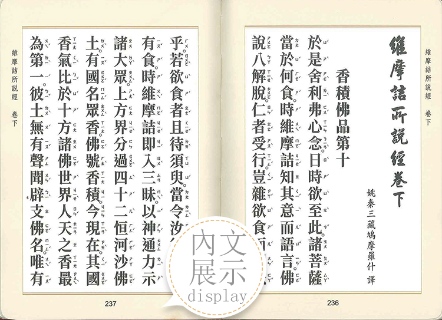 維摩詰所說經 卷下
維摩詰所說經卷下
姚秦三藏鳩摩羅什 譯
香積佛品第十
於是舍利弗心念日時欲至此諸菩薩
當於何食時維摩詰知其意而語言佛
說八解脫仁者受行豈雜欲食而
236
乎若欲食者且待須臾當令汝
有食時維摩詰即入三昧以神通力示
諸大眾上方界分過四十二恒河沙佛
土有國名眾香佛號香積今現在其國
香氣比於十方諸佛世界人天之香最
為第一彼土無有聲聞辟支佛名唯有
維摩詰所說經 卷下
237
內文
展示
display